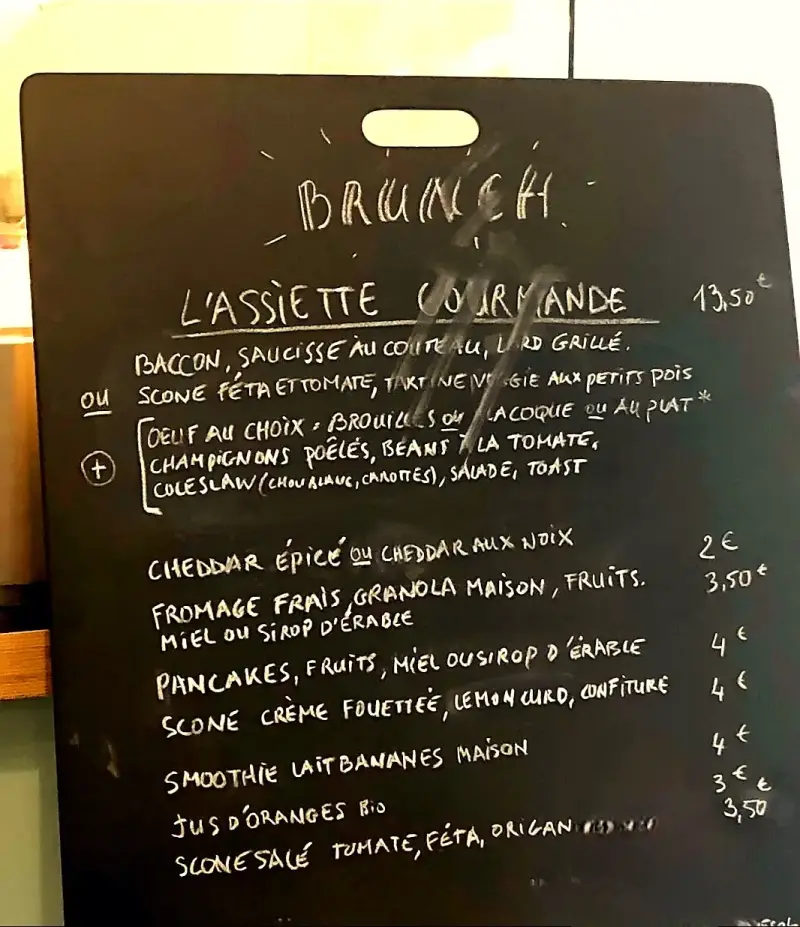 BRUNCH
L'ASSIETTE GOURMANDE 13,50€
BACCON, SAUCISSE AU COUTEAU, LARD GRILLÉ.
OU SCONE FÉTA ET TOMATE, TARTINE VEGGIE AUX PETITS POIS
OEUF AU CHOIX : BROUILLÉS OU À LA COQUE OU AU PLAT*
+ CHAMPIGNONS POÊLÉS, BEANS À LA TOMATE,
COLESLAW (CHOU BLANC, CAROTTES), SALADE, TOAST
CHEDDAR ÉPICÉ OU CHEDDAR AUX NOIX 2€
FROMAGE FRAIS, GRANOLA MAISON, FRUITS. 3,50€
MIEL OU SIROP D'ÉRABLE
PANCAKES, FRUITS, MIEL OU SIROP D'ÉRABLE 4€
SCONE CRÈME FOUETTÉE, LEMON CURD, CONFITURE 4€
SMOOTHIE LAIT BANANES MAISON 4€
JUS D'ORANGES BIO 3€
SCONE SALÉ TOMATE, FÉTA, ORIGAN 3,50€